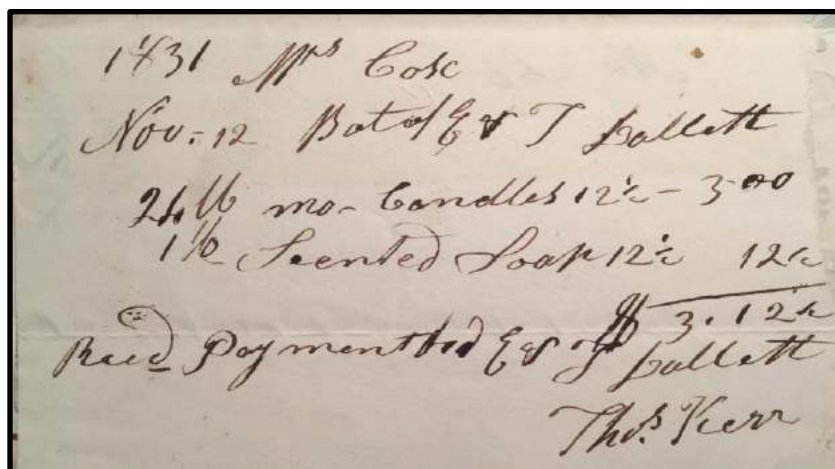 1831 Mrs Cosc
Nov. 12 Bot of E & T Lallett
24 lb mo- Candles 12½ - 3.00
1 lb Scented Soap 12½ 12½
$ 3.12½
Recd Payment E & T Lallett
Thos. Kerr